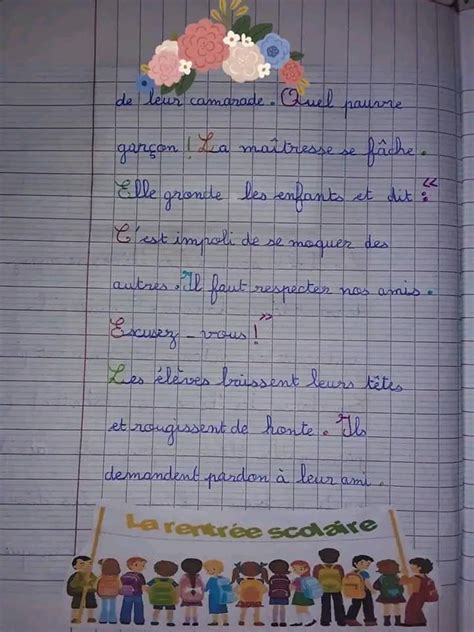 de leur camarade. Quel pauvre
garçon ! La maîtresse se fâche.
Elle gronde les enfants et dit : "
C'est impoli de se moquer des
autres. Il faut respecter nos amis.
Escusez - vous ! "
Les élèves baissent leurs têtes
et rougissent de honte. Ils
demandent pardon à leur ami.
La rentrée scolaire